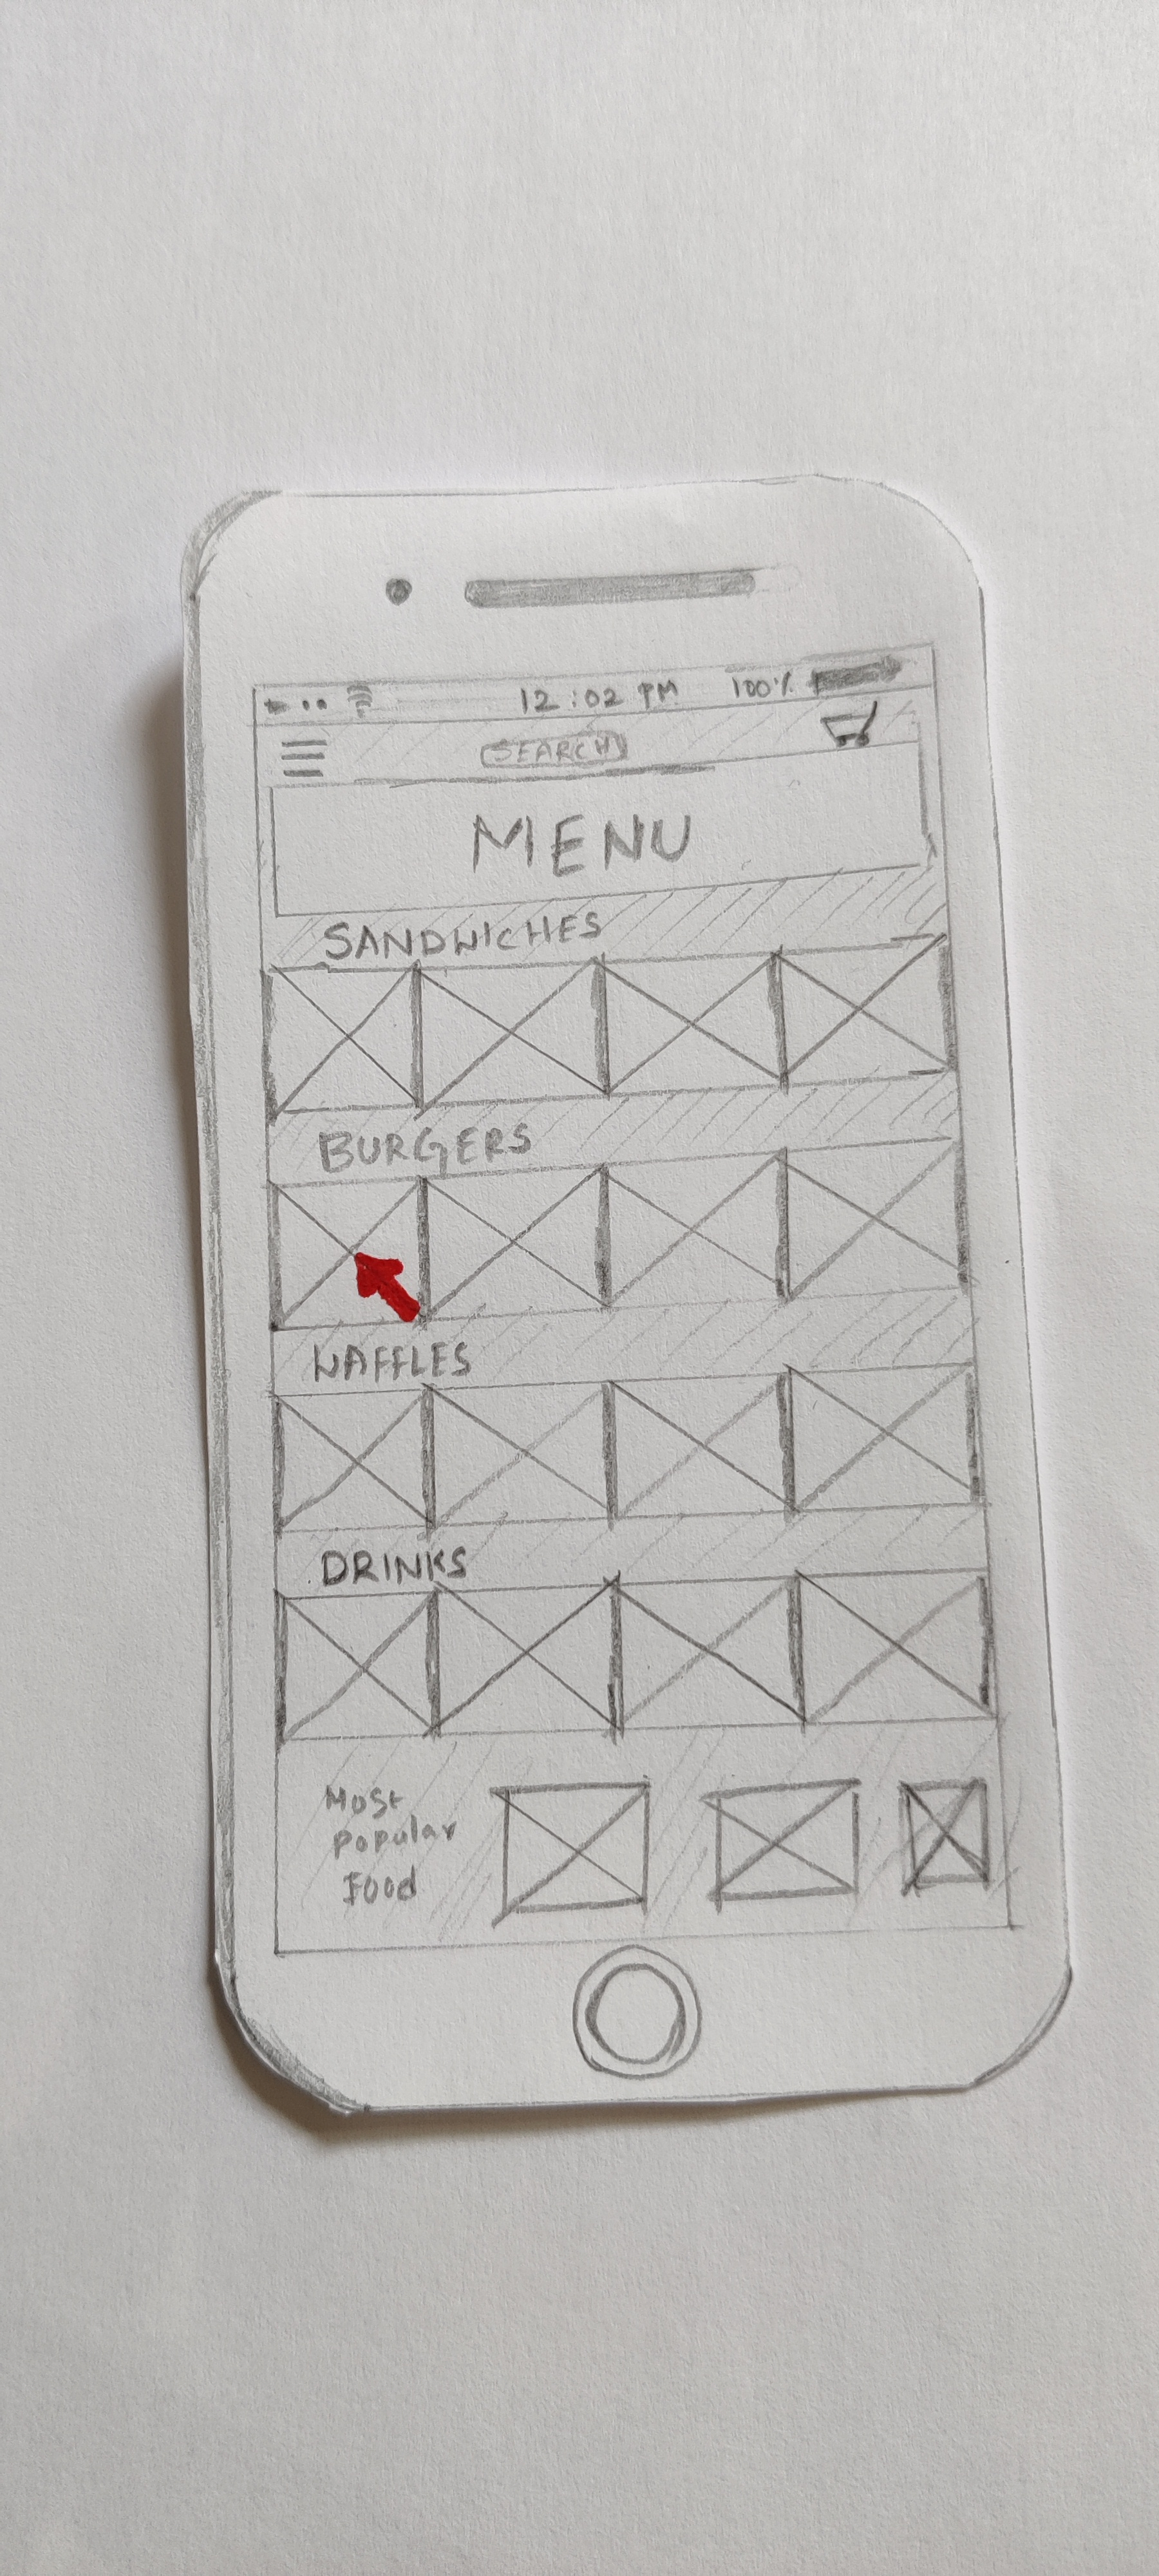 12:02 PM 100%
SEARCH
MENU
SANDWICHES
BURGERS
WAFFLES
DRINKS
Most
Popular
Food